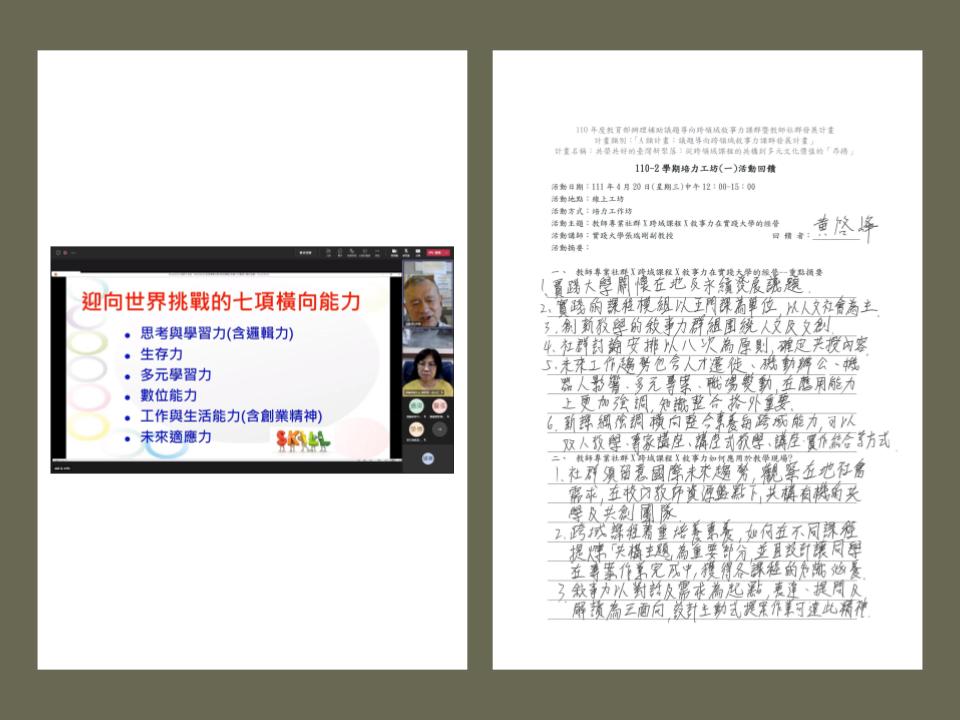 迎向世界挑戰的七項橫向能力
• 思考與學習力(含邏輯力)
• 生存力
• 多元學習力
• 數位能力
• 工作與生活能力(含創業精神)
• 未來適應力
SKILL
110 年度教育部辦理補助議題導向跨領域敘事力課群暨教師社群發展計畫
計畫類別：「A 類計畫：議題導向跨領域敘事力課群發展計畫」
計畫名稱：共學共好的臺灣新聚落：從跨領域課程的共構到多元文化價值的「昂揚」
110-2 學期培力工坊(一)活動回饋
活動日期：111 年 4 月 20 日(星期三)中午 12：00-15：00
活動地點：線上工坊
活動方式：培力工作坊
活動主題：教師專業社群 X 跨域課程 X 敘事力在實踐大學的經營
活動講師：實踐大學張瑞剛副教授 回 饋 者：
活動摘要：
一、 教師專業社群 X 跨域課程 X 敘事力在實踐大學的經營—重點摘要
1. 實踐大學關懷在地及永續發展議題.
2. 實踐的課程模組以五門課為單位, 以人文社會為主.
3. 創新教學的敘事力群組圍繞人文及文創.
4. 社群討論安排以八次為原則, 確定共授內容.
5. 未來工作趨勢包含人才遷徙、機動辦公、機
器人影響、多元專業、職場變動, 在應用能力
上更加強調, 知識整合格外重要.
6. 新課綱強調橫向整合素養與跨域能力, 可以
双人教學、專家講座、講座式教學、講座-實作結合等方式.
二、 教師專業社群 X 跨域課程 X 敘事力如何應用於教學現場?
1. 社群須留意國際未來趨勢, 觀察在地社會
需求, 在校內教師資源盤點下, 共構有機的共
學及共創團隊
2. 跨域課程著重培養素養, 如何在不同課程
提煉「共構主題」為重要部分, 並且設計讓同學
在專業作業完成中, 獲得各課程的知識涵養.
3. 敘事力以對話及需求為起點, 表達、提問及
解讀為三面向, 設計互動式提案作業可達此精神.